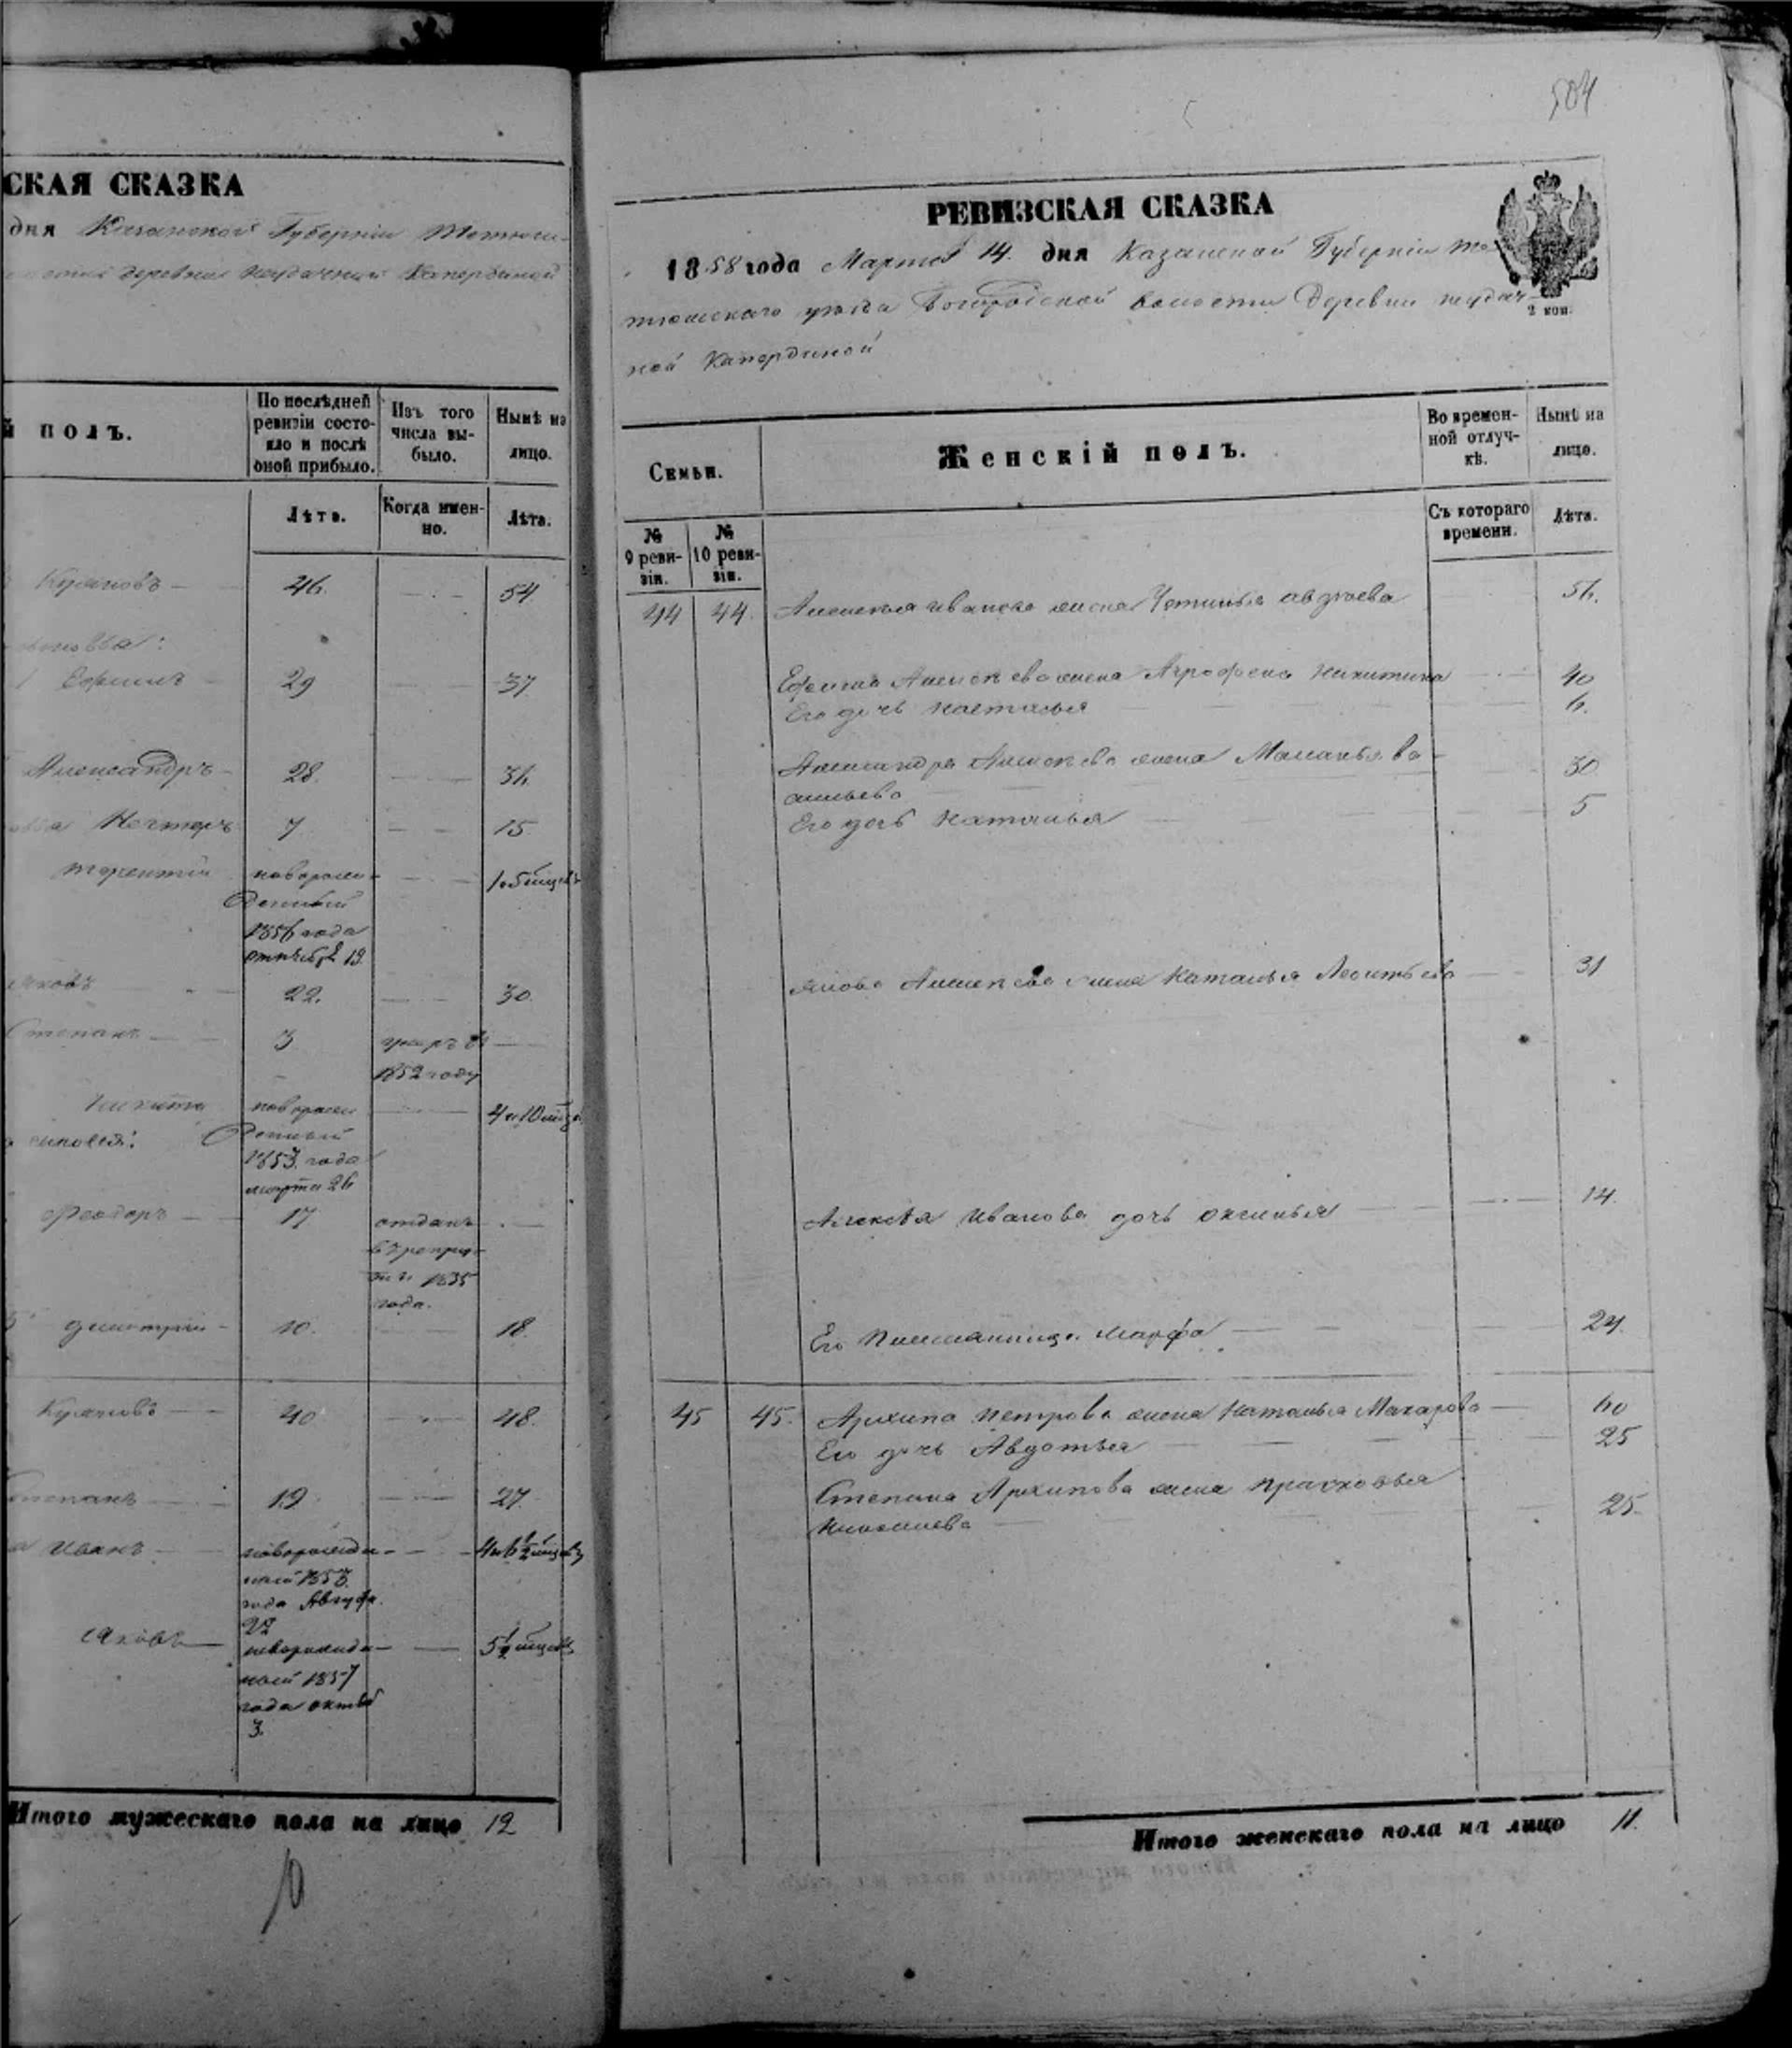 СКАЯ СКАЗКА
дня Казанской Губернiи Тетюш-
деревни неудачной Капердиной
й полъ.
По послѣдней ревизiи состо-
яло и послѣ оной прибыло.
Изъ того числа вы-
было.
Нынѣ на лицо.
Лѣта.
Когда имен-
но.
Лѣта.
Куяновъ 46. 54
Ефимъ 29 37
Александръ 28. 36.
Нестеръ 7 15.
Терентiй новорож-
денный
1856 года
19.
22. 30.
Степанъ 3 умеръ въ
1852 году
Никита новорож
денный
1853. года
марта 26
4 и 10
сыновья:
Феодоръ 17 отданъ
года.
Димитрiй 10. 18.
40 48.
Степанъ 19 27.
Иванъ новорожден
ный 1853
года Август.
22
Яковъ новорожден
ный 1857
года октяб
3.
Итого мужескаго пола на лицо 12
504
РЕВИЗСКАЯ СКАЗКА
1858 года Марта 14. дня Казанской Губернiи Те
тюшскаго уѣзда Богородской волости Деревни неудач-
2 коп.
ной Капердиной
Семьи.
Женскiй полъ.
Во времен-
ной отлуч-
кѣ.
Нынѣ на
лицо.
№
9 реви-
зiи.
№
10 реви-
зiи.
Съ котораго
времени.
Лѣта.
44 44. Алексѣя Иванова жена Устинья 56.
Ефима Алексѣева жена Агрофена Никитина 40
Его дочь Наталья 6.
Александра Алексѣева жена Маланья Ва-
сильева 30
Его дочь Наталья 5
Якова Алексѣева жена Наталья Леонтьева 31
Алексѣя Иванова дочь Оксинья 14.
Его племянница Марфа 24.
45 45. Архипа Петрова жена Наталья Макарова 60
Его дочь Авдотья 25
Степана Архипова жена Прасковья
Николаева 25.
Итого женскаго пола на лицо 11.